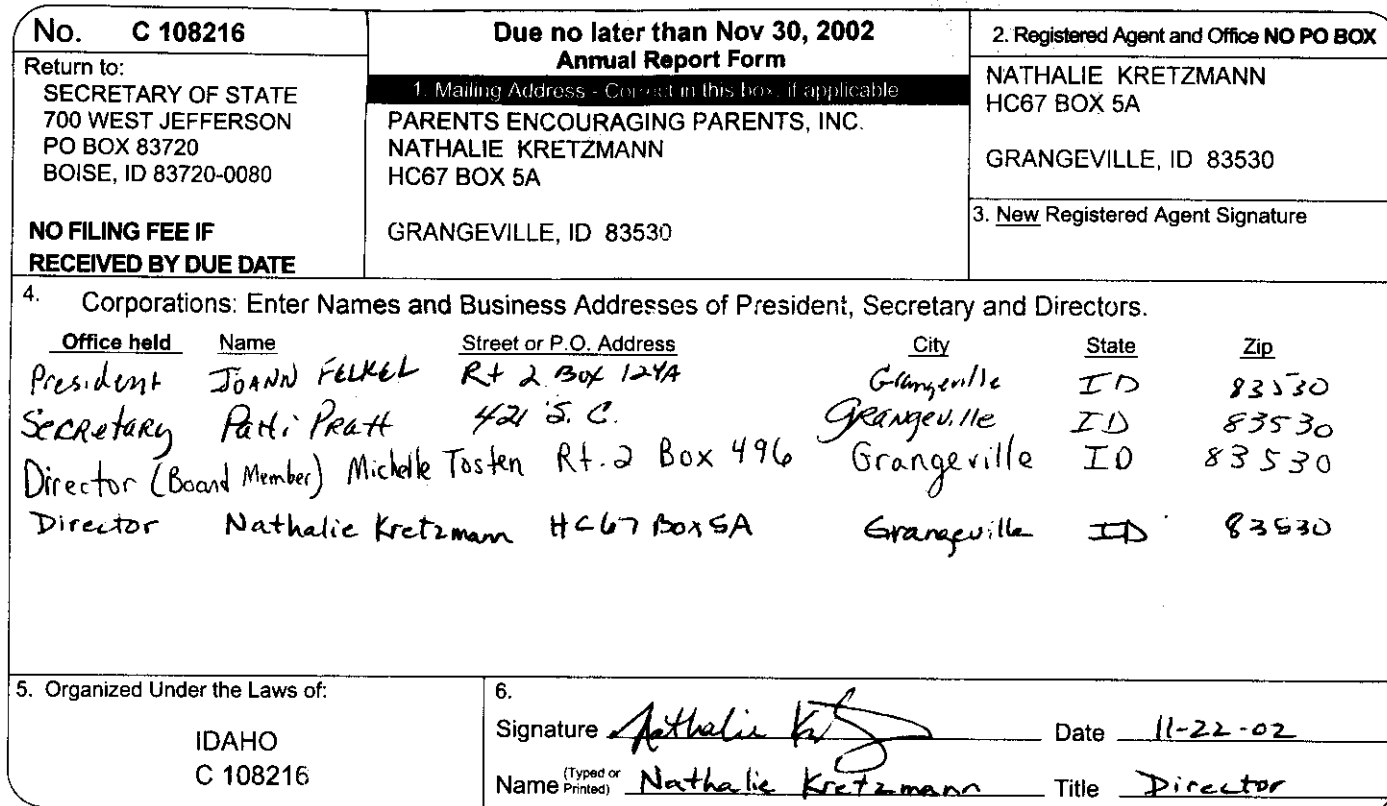 No. C 108216
Return to:
SECRETARY OF STATE
700 WEST JEFFERSON
PO BOX 83720
BOISE, ID 83720-0080
NO FILING FEE IF
RECEIVED BY DUE DATE
Due no later than Nov 30, 2002
Annual Report Form
1. Mailing Address - Correct in this box, if applicable
PARENTS ENCOURAGING PARENTS, INC.
NATHALIE KRETZMANN
HC67 BOX 5A
GRANGEVILLE, ID 83530
2. Registered Agent and Office NO PO BOX
NATHALIE KRETZMANN
HC67 BOX 5A
GRANGEVILLE, ID 83530
3. New Registered Agent Signature
4. Corporations: Enter Names and Business Addresses of President, Secretary and Directors.
Office held Name Street or P.O. Address City State Zip
President JOANN FELKEL Rt 2 Box 124A Grangeville ID 83530
Secretary Patti Pratt 421 S. C. Grangeville ID 83530
Director (Board Member) Michelle Tosten Rt. 2 Box 496 Grangeville ID 83530
Director Nathalie Kretzmann HC67 Box 5A Grangeville ID 83530
5. Organized Under the Laws of:
IDAHO
C 108216
6.
Signature Nathalie K Date 11-22-02
Name (Typed or Printed) Nathalie Kretzmann Title Director